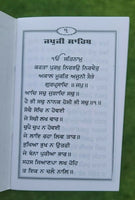 ੧
ਜਪੁਜੀ ਸਾਹਿਬ
ੴ ਸਤਿਨਾਮੁ
ਕਰਤਾ ਪੁਰਖੁ ਨਿਰਭਉ ਨਿਰਵੈਰੁ
ਅਕਾਲ ਮੂਰਤਿ ਅਜੂਨੀ ਸੈਭੰ
ਗੁਰਪ੍ਰਸਾਦਿ ॥ ਜਪੁ ॥
ਆਦਿ ਸਚੁ ਜੁਗਾਦਿ ਸਚੁ ॥
ਹੈ ਭੀ ਸਚੁ ਨਾਨਕ ਹੋਸੀ ਭੀ ਸਚੁ ॥
ਸੋਚੈ ਸੋਚਿ ਨ ਹੋਵਈ
ਜੇ ਸੋਚੀ ਲਖ ਵਾਰ ॥
ਚੁਪੈ ਚੁਪ ਨ ਹੋਵਈ
ਜੇ ਲਾਇ ਰਹਾ ਲਿਵ ਤਾਰ ॥
ਭੁਖਿਆ ਭੁਖ ਨ ਉਤਰੀ
ਜੇ ਬੰਨਾ ਪੁਰੀਆ ਭਾਰ ॥
ਸਹਸ ਸਿਆਣਪਾ ਲਖ ਹੋਹਿ
ਤ ਇਕ ਨ ਚਲੈ ਨਾਲਿ ॥